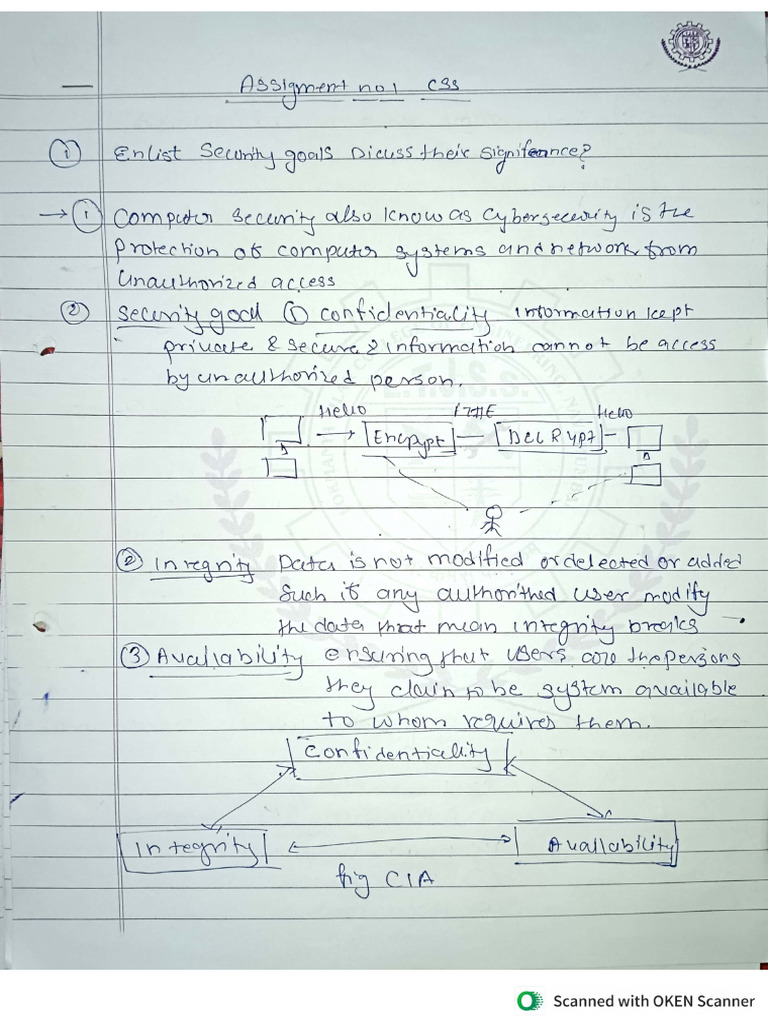 Assigment no 1 CSS
① Enlist Security goals Dicuss their Signifennce?
→ ① Computer Security also know as Cybersecurity is the
Protection of computer systems and network from
Unauthorized access
② Security goal ① confidentiality information kept
private & secure & information cannot be access
by unauthorized person.
Hello Hello
Encrypt Decrypt
② Integrity Data is not modified or delected or added
Such if any authorithed user modify
the data that mean integrity breaks
③ Availability ensuring that users are the persons
they claim to be system available
to whom requires them.
Confidentiality
Integrity Availability
fig CIA
Scanned with OKEN Scanner